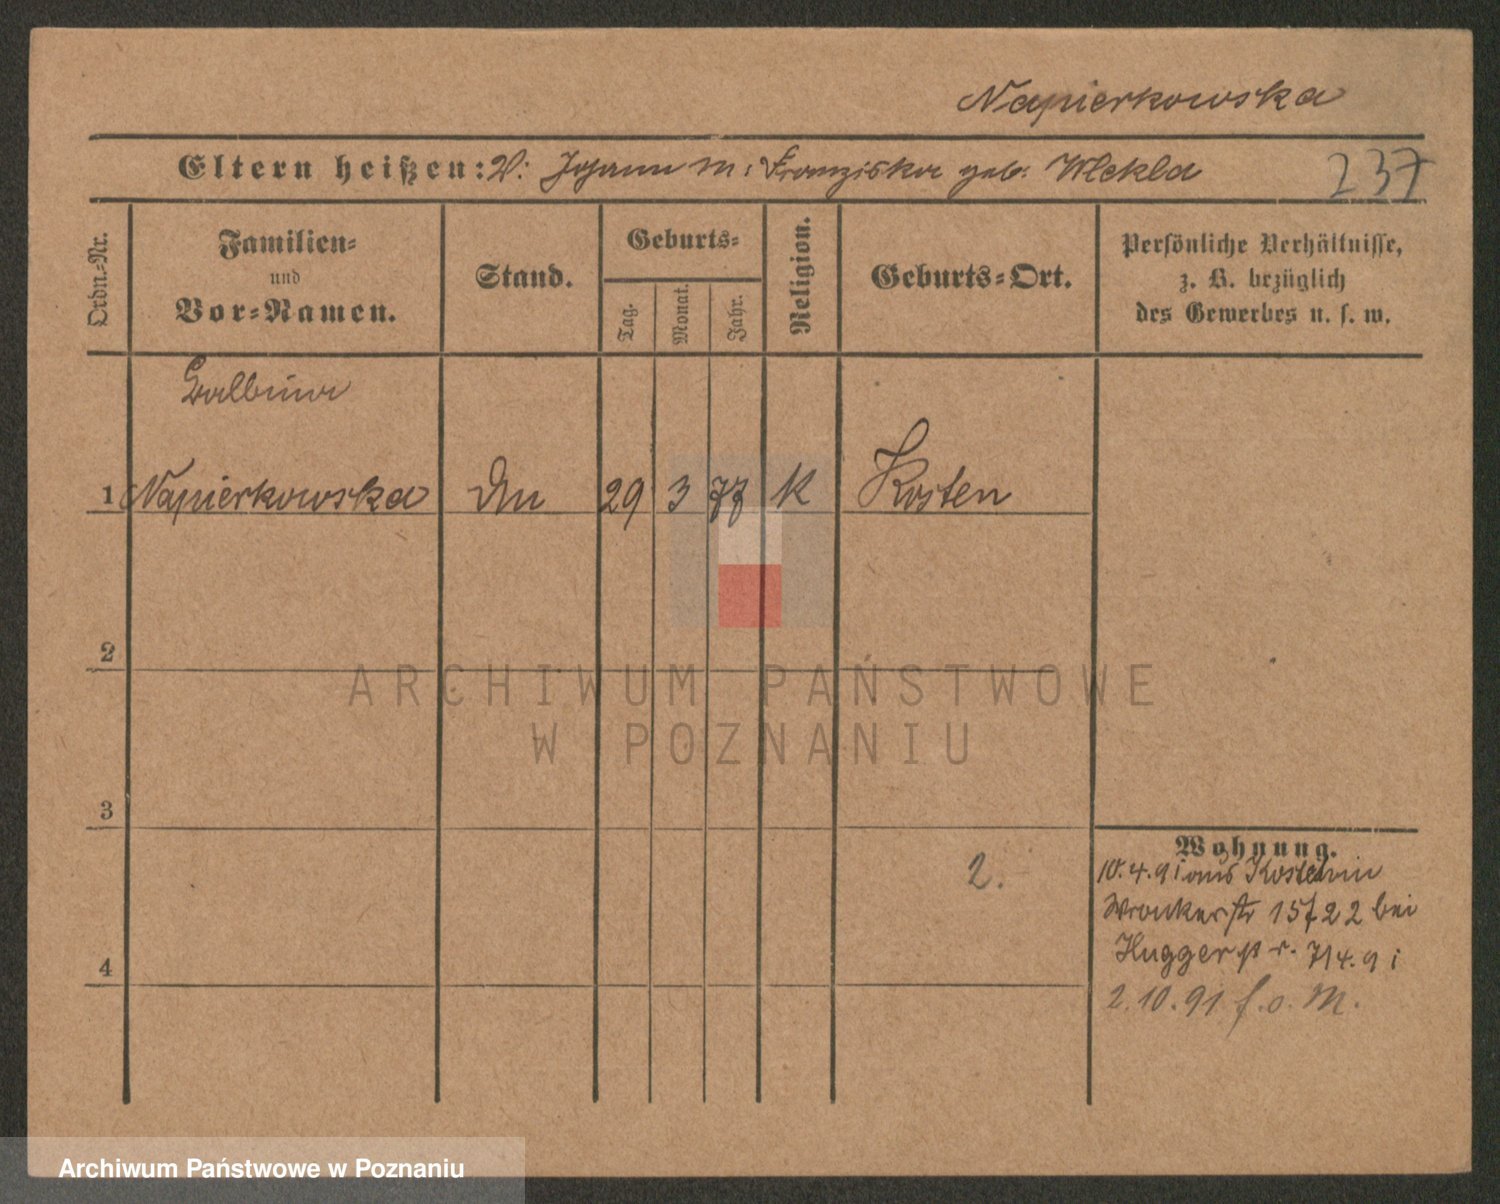 Napierkowska
Eltern heißen: V: Johann M: Franziska geb. Wlekla
237
Ordn.-Nr.
Familien-
und
Vor-Namen.
Stand.
Geburts-
Tag.
Monat.
Jahr.
Religion.
Geburts-Ort.
Persönliche Verhältnisse,
z. B. bezüglich
des Gewerbes u. s. w.
Balbina
1 Napierkowska 29 3 77 K Kosten
2
ARCHIWUM PAŃSTWOWE
W POZNANIU
3
Wohnung.
2.
10.4.91 aus Kosten in
Wronkerstr 15 22 bei
Hugger
4
2.10.91 f. o. M.
Archiwum Państwowe w Poznaniu